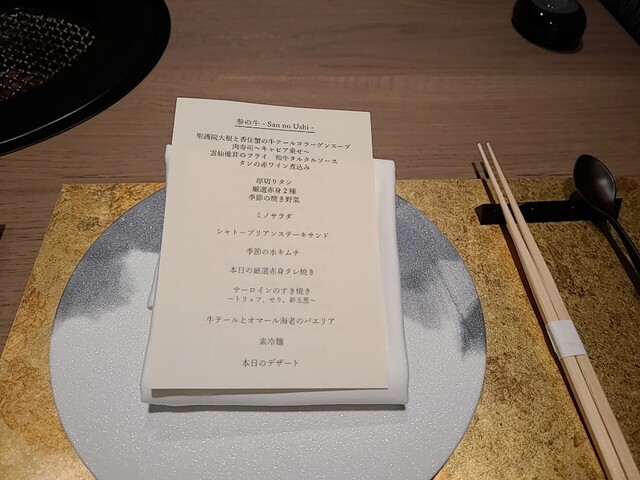 参の牛 - San no Ushi -
聖護院大根と香住蟹の牛テールコラーゲンスープ
肉寿司〜キャビア乗せ〜
雲仙椎茸のフライ 和牛タルタルソース
タンの赤ワイン煮込み
厚切りタン
厳選赤身２種
季節の焼き野菜
ミノサラダ
シャトーブリアンステーキサンド
季節の水キムチ
本日の厳選赤身タレ焼き
サーロインのすき焼き
〜トリュフ、せり、新玉葱〜
牛テールとオマール海老のパエリア
素冷麺
本日のデザート